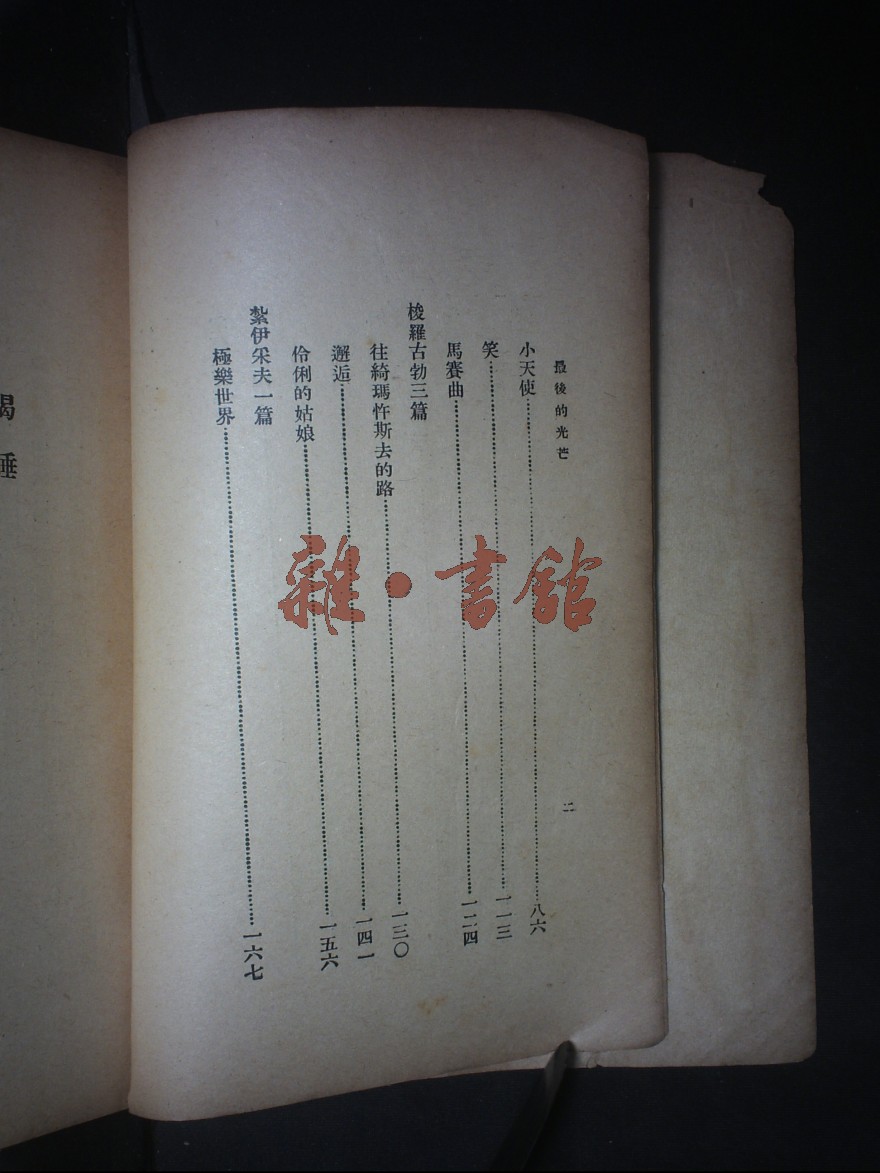 最後的光芒
二
小天使……八六
笑……一一三
馬賽曲……一二四
梭羅古勃三篇
往綺瑪忤斯去的路……一三〇
邂逅……一四一
伶俐的姑娘……一五六
紮伊采夫一篇
極樂世界……一六七
雜·書館